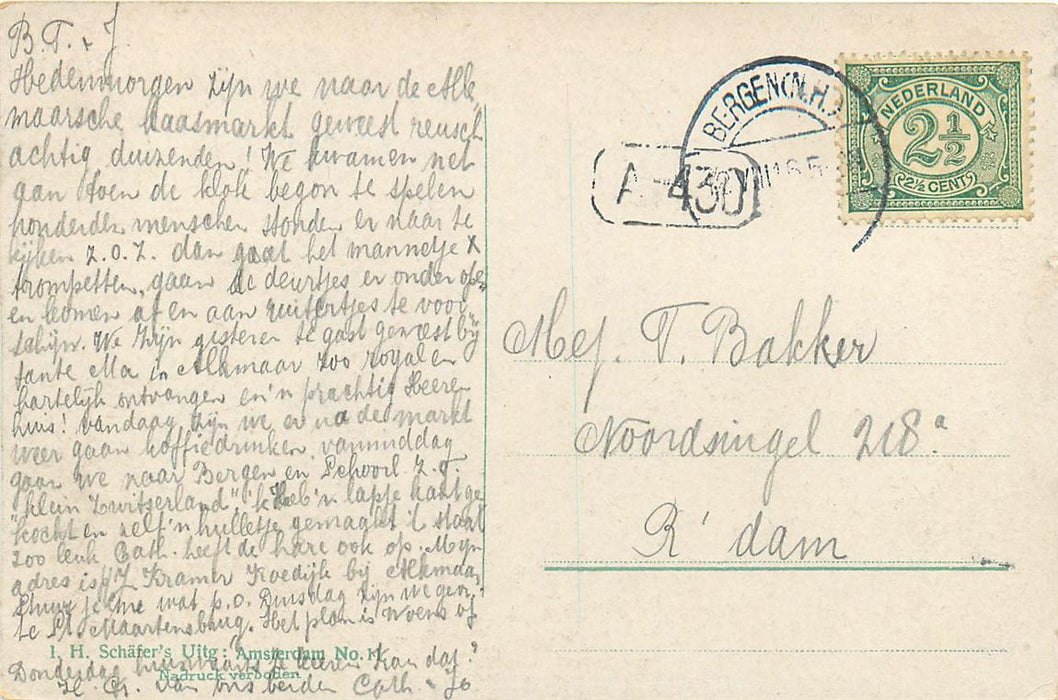 B.T. + J.
Hedenmorgen zijn we naar de Alk„
maarsche kaasmarkt geweest reusch
achtig duizenden! We kwamen net
aan toen de klok begon te spelen
honderden menschen stonden er naar te
kijken z.o.z. dan gaat het mannetje
trompetten, gaan de deurtjes er onder open
en komen af en aan ruitertjes te voor„
schijn. We zijn gisteren te gast geweest bij
tante Ma in Alkmaar zoo royale
hartelijk ontvangen en 'n prachtig Heeren
huis! vandaag zijn we er na de markt
weer gaan koffiedrinken, vanmiddag
gaan we naar Bergen en Schoorl z.g.
"klein Zwitserland", 'k Heb 'n lapje kant ge
kocht en zelf 'n hulletje gemaakt 't staat
zoo leuk Cath. heeft de hare ook op. Mijn
adres is p/J Kramer Koedijk bij Alkmaar
Stuur je me wat p.o. Dinsdag zijn we
te St. Maartensbrug. Het plan is Woens of
Donderdag huiswaarts te keeren kan dat?
H. Gr. van ons beiden Cath + Jo
I. H. Schäfer's Uitg: Amsterdam No.
Nadruk verboden
BERGEN(N.H.)
A-430
NEDERLAND
2½
2½ CENT
Mej. T. Bakker
Noordsingel 218a
R'dam